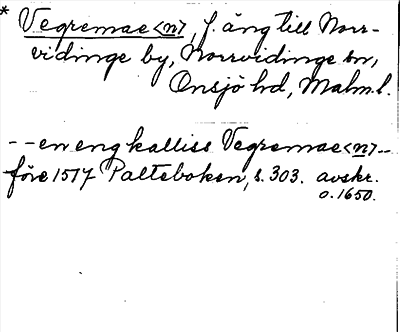 * Vegremae<n>, f. äng till Norr-
vidinge by, Norrvidinge sn,
Onsjö hd, Malm.l.
--en eng kalliss Vegremae<n>--
före 1517 Palteboken, s. 303. avskr.
o.1650.